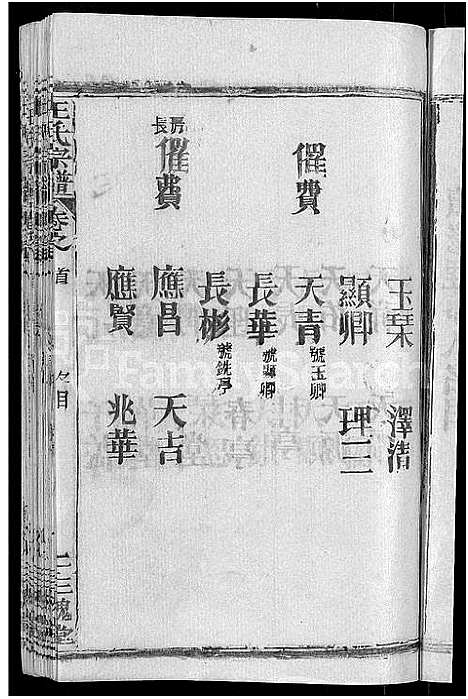 玉琹 澤清
顯卿 理三
催費
天青 號玉卿
長華 號顯卿
長彬 號銑亭
長房
催費
應昌 天吉
應賢 兆華
王氏宗譜 卷之首 名目 三槐堂